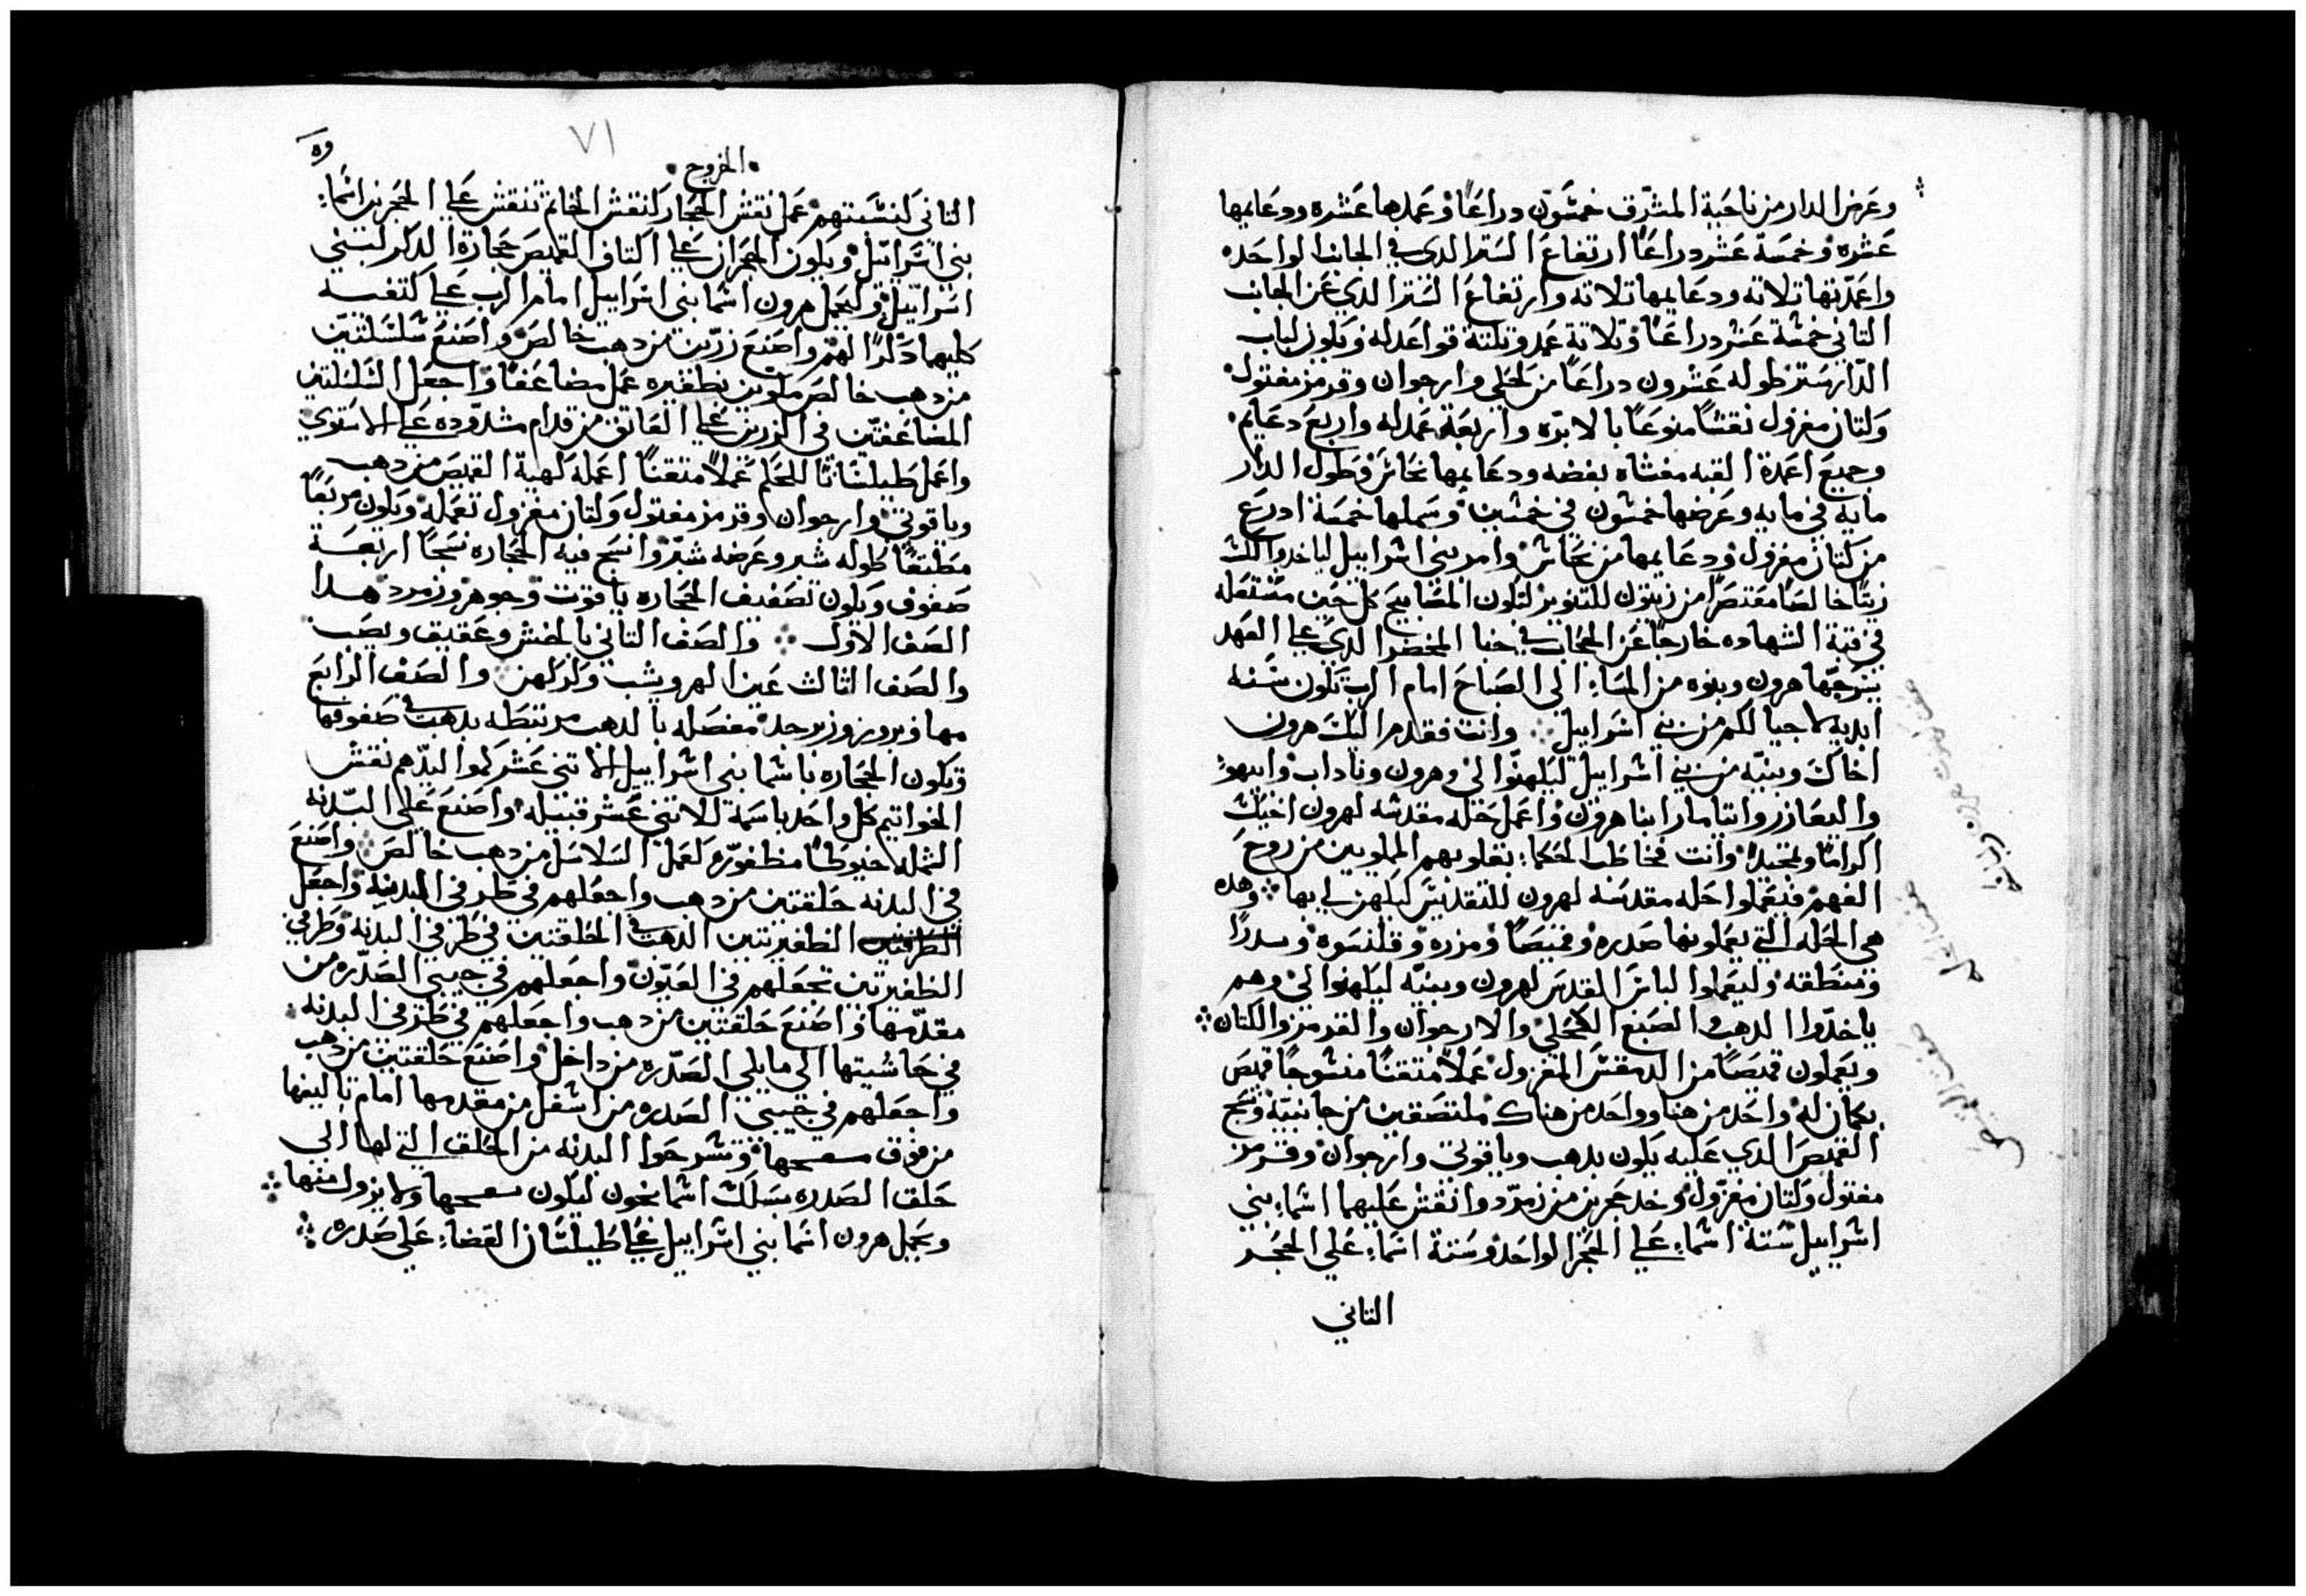 وعرض الدار من ناحية المشرق خمسون دراعًا وعمدها عشره ودعايمها
عشره وخمسة عشر دراعًا ارتفاع الستر الدي في الجانب الواحد
واعمدتها تلاته ودعايمها تلاته وارتفاع الستر الدي عن الجانب
التاني خمسة عشر دراعًا وتلاتة عمد وتلتة قواعد له ويكون لباب
الدار ستر طوله عشرون دراعًا من كحلي وارجوان وقرمز مفتول
وكتان مغزول نقشًا منوعًا بالابره واربعة عمد له واربع دعايم
وجميع اعمدة القبه مغشاه بفضه ودعايمها نحاس وطول الدار
مايه في مايه وعرضها خمسون في خمسين وسملها خمسة ادرع
من كتان مغزول ودعايمها من نحاس وامر بني اسراييل لياخدوا لك
زيتًا خالصًا معتصرًا من زيتون للتنوير لتكون المصابيح كل حين مشتعله
في قبة الشهاده خارجًا عن الحجاب في خبا المحضر الدي علي العهد
يسرجها هرون وبنوه من المساء الي الصباح امام الرب تكون سنه
ابديه لاجيالكم من بني اسراييل وانت فقدم اليك هرون
اخاك وبنيه من بني اسراييل ليكهنوا لي وهرون وناداب وابيهو
واليعازر وايتامار ابنا هرون واعمل حله مقدسه لهرون اخيك
اكرامًا وتمجيدًا وانت فخاطب الحكماء بقلوبهم المملويين من روح
الفهم فيعملوا حله مقدسه لهرون للتقديس ليكهن لي بها وهده
هي الحله التي يعملونها صدره وقميصًا ومزره وقلنسوه وسدرًا
ومنطقه وليعملوا لباس القدس لهرون وبنيه ليكهنوا لي وهم
ياخدوا الدهب والصبغ الكحلي والارجوان والقرمز والكتان
ويعملون قميصًا من الدمقس المغزول عملًا متقنًا منسوجًا قميص
بكمان له واحد من هنا وواحد من هناك ملتصقين من جانبيه ونسج
القميص الدي عليه يكون بدهب وياقوتي وارجوان وقرمز
مفتول وكتان مغزول وخد حجرين من زمرد وانقش عليهما اسماء بني
اسراييل ستة اسماء علي الحجر الواحد وستة اسماء علي الحجر
التاني
الخروج
٧١
التاني كنسبتهم عمل نقش الحجار كنقش الخاتم تنقش علي الحجرين اسماء
بني اسراييل ويكون الحجران علي اكتاف القميص حجارة الدكر لبني
اسراييل وليحمل هرون اسما بني اسراييل امام الرب علي كتفيه
كليهما دكرًا لهم واصنع زرين من دهب خالص واصنع سلسلتين
من دهب خالص مكونين بظفيره عمل مضاعفًا واجعل السلسلتين
المضاعفتين في الزرين علي العاتق من قدام مشدوده علي الاستوي
واعمل طيلسانًا للحكم عملًا متقنًا اعمله كهية القميص من دهب
وياقوتي وارجوان وقرمز مفتول وكتان مغزول تعمله ويكون مربعًا
مطبقًا طوله شبر وعرضه شبر وانسج فيه الحجاره نسجًا اربعة
صفوف ويكون تصفيف الحجاره ياقوت وجوهر وزمرد هدا
الصف الاول والصف التاني بالخش وعقيق ويصب
والصف الثالث عين الهر ويشب وكركهن والصف الرابع
مها وبيروز وزبرجد مفصله بالدهب مرتبطه بدهب في صفوفها
وتكون الحجاره باسما بني اسراييل الاتني عشر كموالبدهم نقش
الخواتيم كل واحد باسمه للاتني عشر قبيله واصنع علي البدنه
الشمله خيوطًا مظفوره كعمل السلاسل من دهب خالص واصنع
في البدنه حلقتين من دهب واجعلهم في طرفي البدنه واجعل
الظفيرتين الدهب في الحلقتين في طرفي البدنه وطرفي
الظفيرتين تجعلهم في العيون واجعلهم في جيبي الصدره من
مقدمها واصنع حلقتين من دهب واجعلهم في طرفي البدنه
في حاشيتها الي مايلي الصدره من داخل واصنع حلقتين من دهب
واجعلهم في جيبي الصدره من اسفل من مقدمها امام تاليفها
من فوق وتشرحوا البدنه من الحلق التي لها الي
حلق الصدره بسلك اسمانجون ليكون ولا يزول منها
ويحمل هرون اسما بني اسراييل علي طيلسان القضاء علي صدره